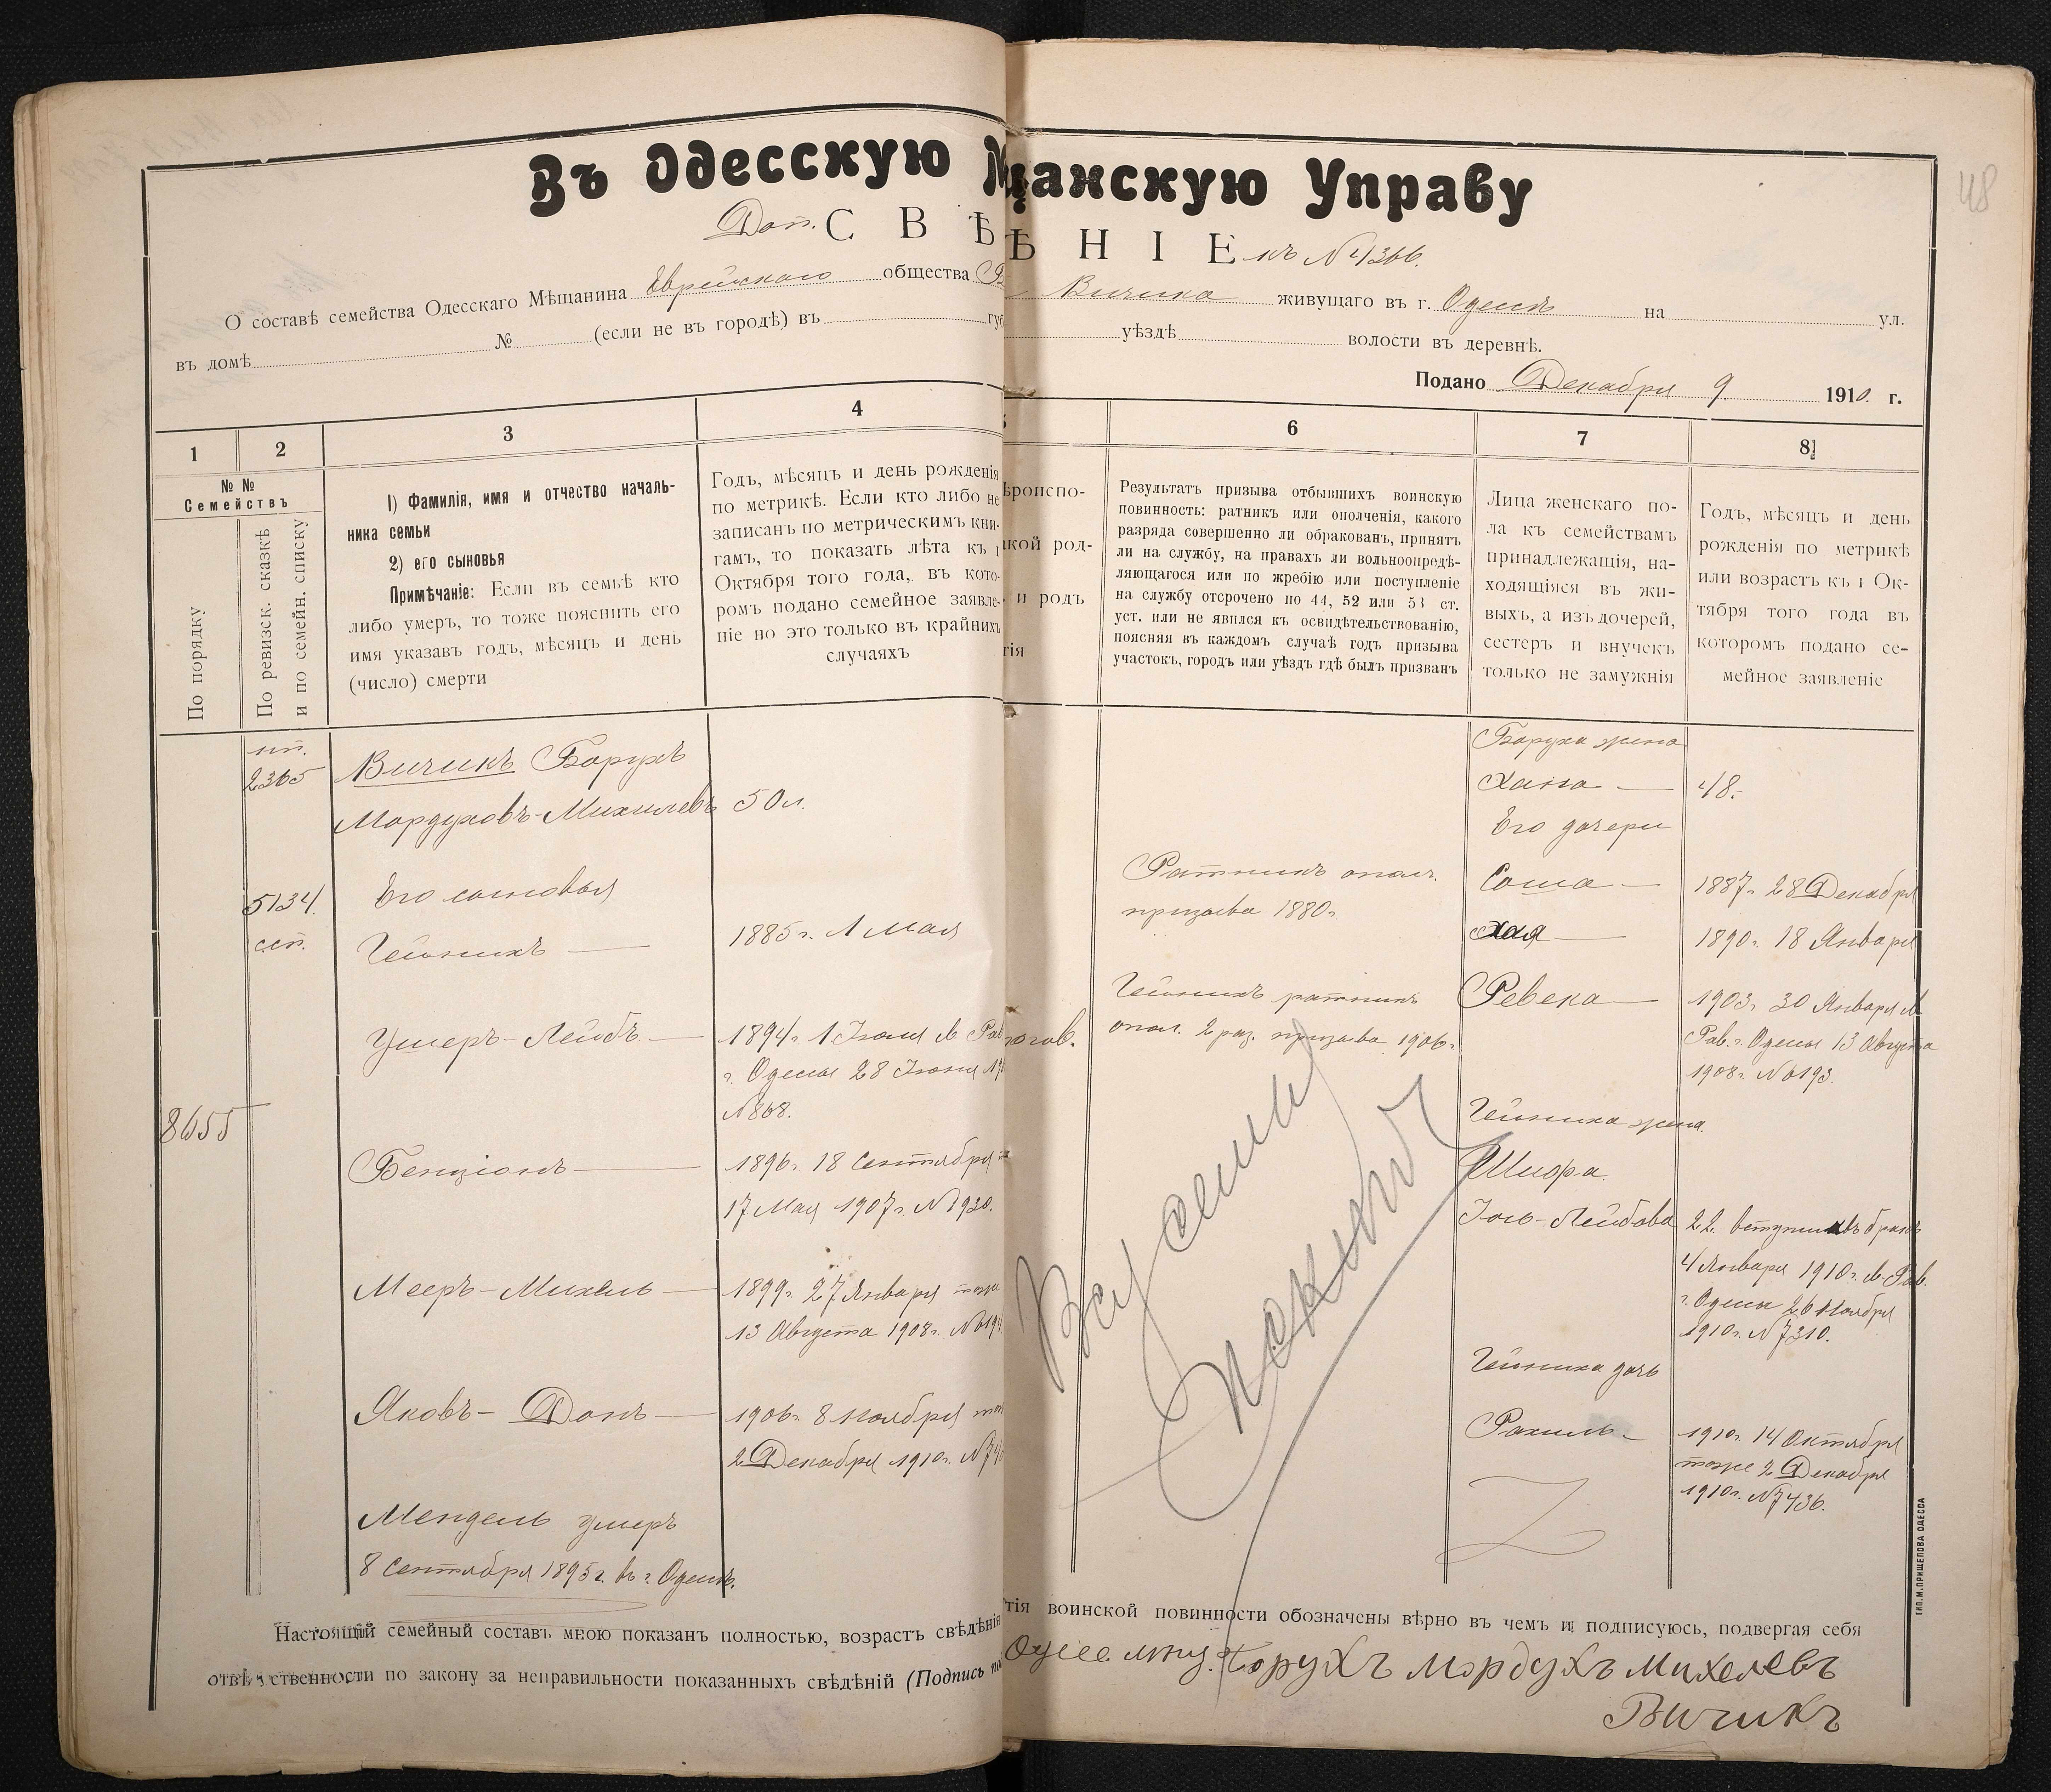 Въ Одесскую Мѣщанскую Управу
48
Доп. СВѢ ѢНІЕ къ № 4366.
О составѣ семейства Одесскаго Мѣщанина Еврейскаго общества Б Вичика живущаго въ г. Одессѣ на ул.
въ домѣ № (если не въ городѣ) въ губ уѣздѣ волости въ деревнѣ.
Подано Декабря 9 1910 г.
1 2 3 4 6 7 8
№ №
Семействъ
По порядку
По ревизск. сказкѣ
и по семейн. списку
1) Фамилія, имя и отчество началь-
ника семьи
2) его сыновья
Примѣчаніе: Если въ семьѣ кто
либо умеръ, то тоже пояснить его
имя указавъ годъ, мѣсяцъ и день
(число) смерти
Годъ, мѣсяцъ и день рожденія
по метрикѣ. Если кто либо не
записанъ по метрическимъ кни-
гамъ, то показать лѣта къ 1
Октября того года, въ кото-
ромъ подано семейное заявле-
ніе но это только въ крайнихъ
случаяхъ
ѣроиспо-
кой род-
и родъ
тія
Результатъ призыва отбывшихъ воинскую
повинность: ратникъ или ополченія, какого
разряда совершенно ли обракованъ, принятъ
ли на службу, на правахъ ли вольноопредѣ-
ляющагося или по жребію или поступленіе
на службу отсрочено по 44, 52 или 53 ст.
уст. или не явился къ освидѣтельствованію,
поясняя въ каждомъ случаѣ годъ призыва
участокъ, городъ или уѣздъ гдѣ былъ призванъ
Лица женскаго по-
ла къ семействамъ
принадлежащія, на-
ходящіяся въ жи-
выхъ, а изъ дочерей,
сестеръ и внучекъ
только не замужнія
Годъ, мѣсяцъ и день
рожденія по метрикѣ
или возрастъ къ 1 Ок-
тября того года въ
которомъ подано се-
мейное заявленіе
8655
2365
5134.
сп.
Вичикъ Борухъ
Мордуховъ-Михилевъ 50 л.
Его сыновья
Гейнихъ — 1885 г. 1 Мая
Умеръ-Лейбъ — 1894 г. 1 Іюля в Рав
г. Одессы 28 Іюня 19
№ 868.
Бенціонъ — 1896 г. 18 Сентября
17 Мая 1907 г. № 930.
Мееръ-Михель — 1899 г. 27 Января тоже
13 Августа 1908 г. № 619
Яковъ-Донъ — 1906 г. 8 Ноября тоже
2 Декабря 1910 г. № 74
Мендель умеръ
8 Сентября 1895 г. въ г. Одессѣ.
Ратникъ опол.
призыва 1880 г.
Гейнихъ ратникъ
опол. 2 раз. призыва 1906 г.
Боруха жена
Хана — 48.
Его дочери
Соша — 1887 г. 28 Декабря
Хая — 1890 г. 18 Января
Ревека — 1903 г. 30 Января в
Рав. г. Одессы 13 Августа
1908 г. № 6193.
Гейниха жена
Шифра
Іось-Лейбова 22. вступилъ въ бракъ
4 Января 1910 г. в Рав.
г. Одессы 26 Ноября
1910 г. № 7310.
Гейниха дочь
Рахиль — 1910 г. 14 Октября
тоже 2 Декабря
1910 г. № 7436.
Настоящій семейный составъ мною показанъ полностью, возрастъ свѣдѣнія тія воинской повинности обозначены вѣрно въ чемъ и подписуюсь, подвергая себя
отвѣтственности по закону за неправильности показанныхъ свѣдѣній (Подпись по
Борухъ Мордухъ Михелевъ
Вичикъ
ТИП. М. ПРИЩЕПОВА ОДЕССА